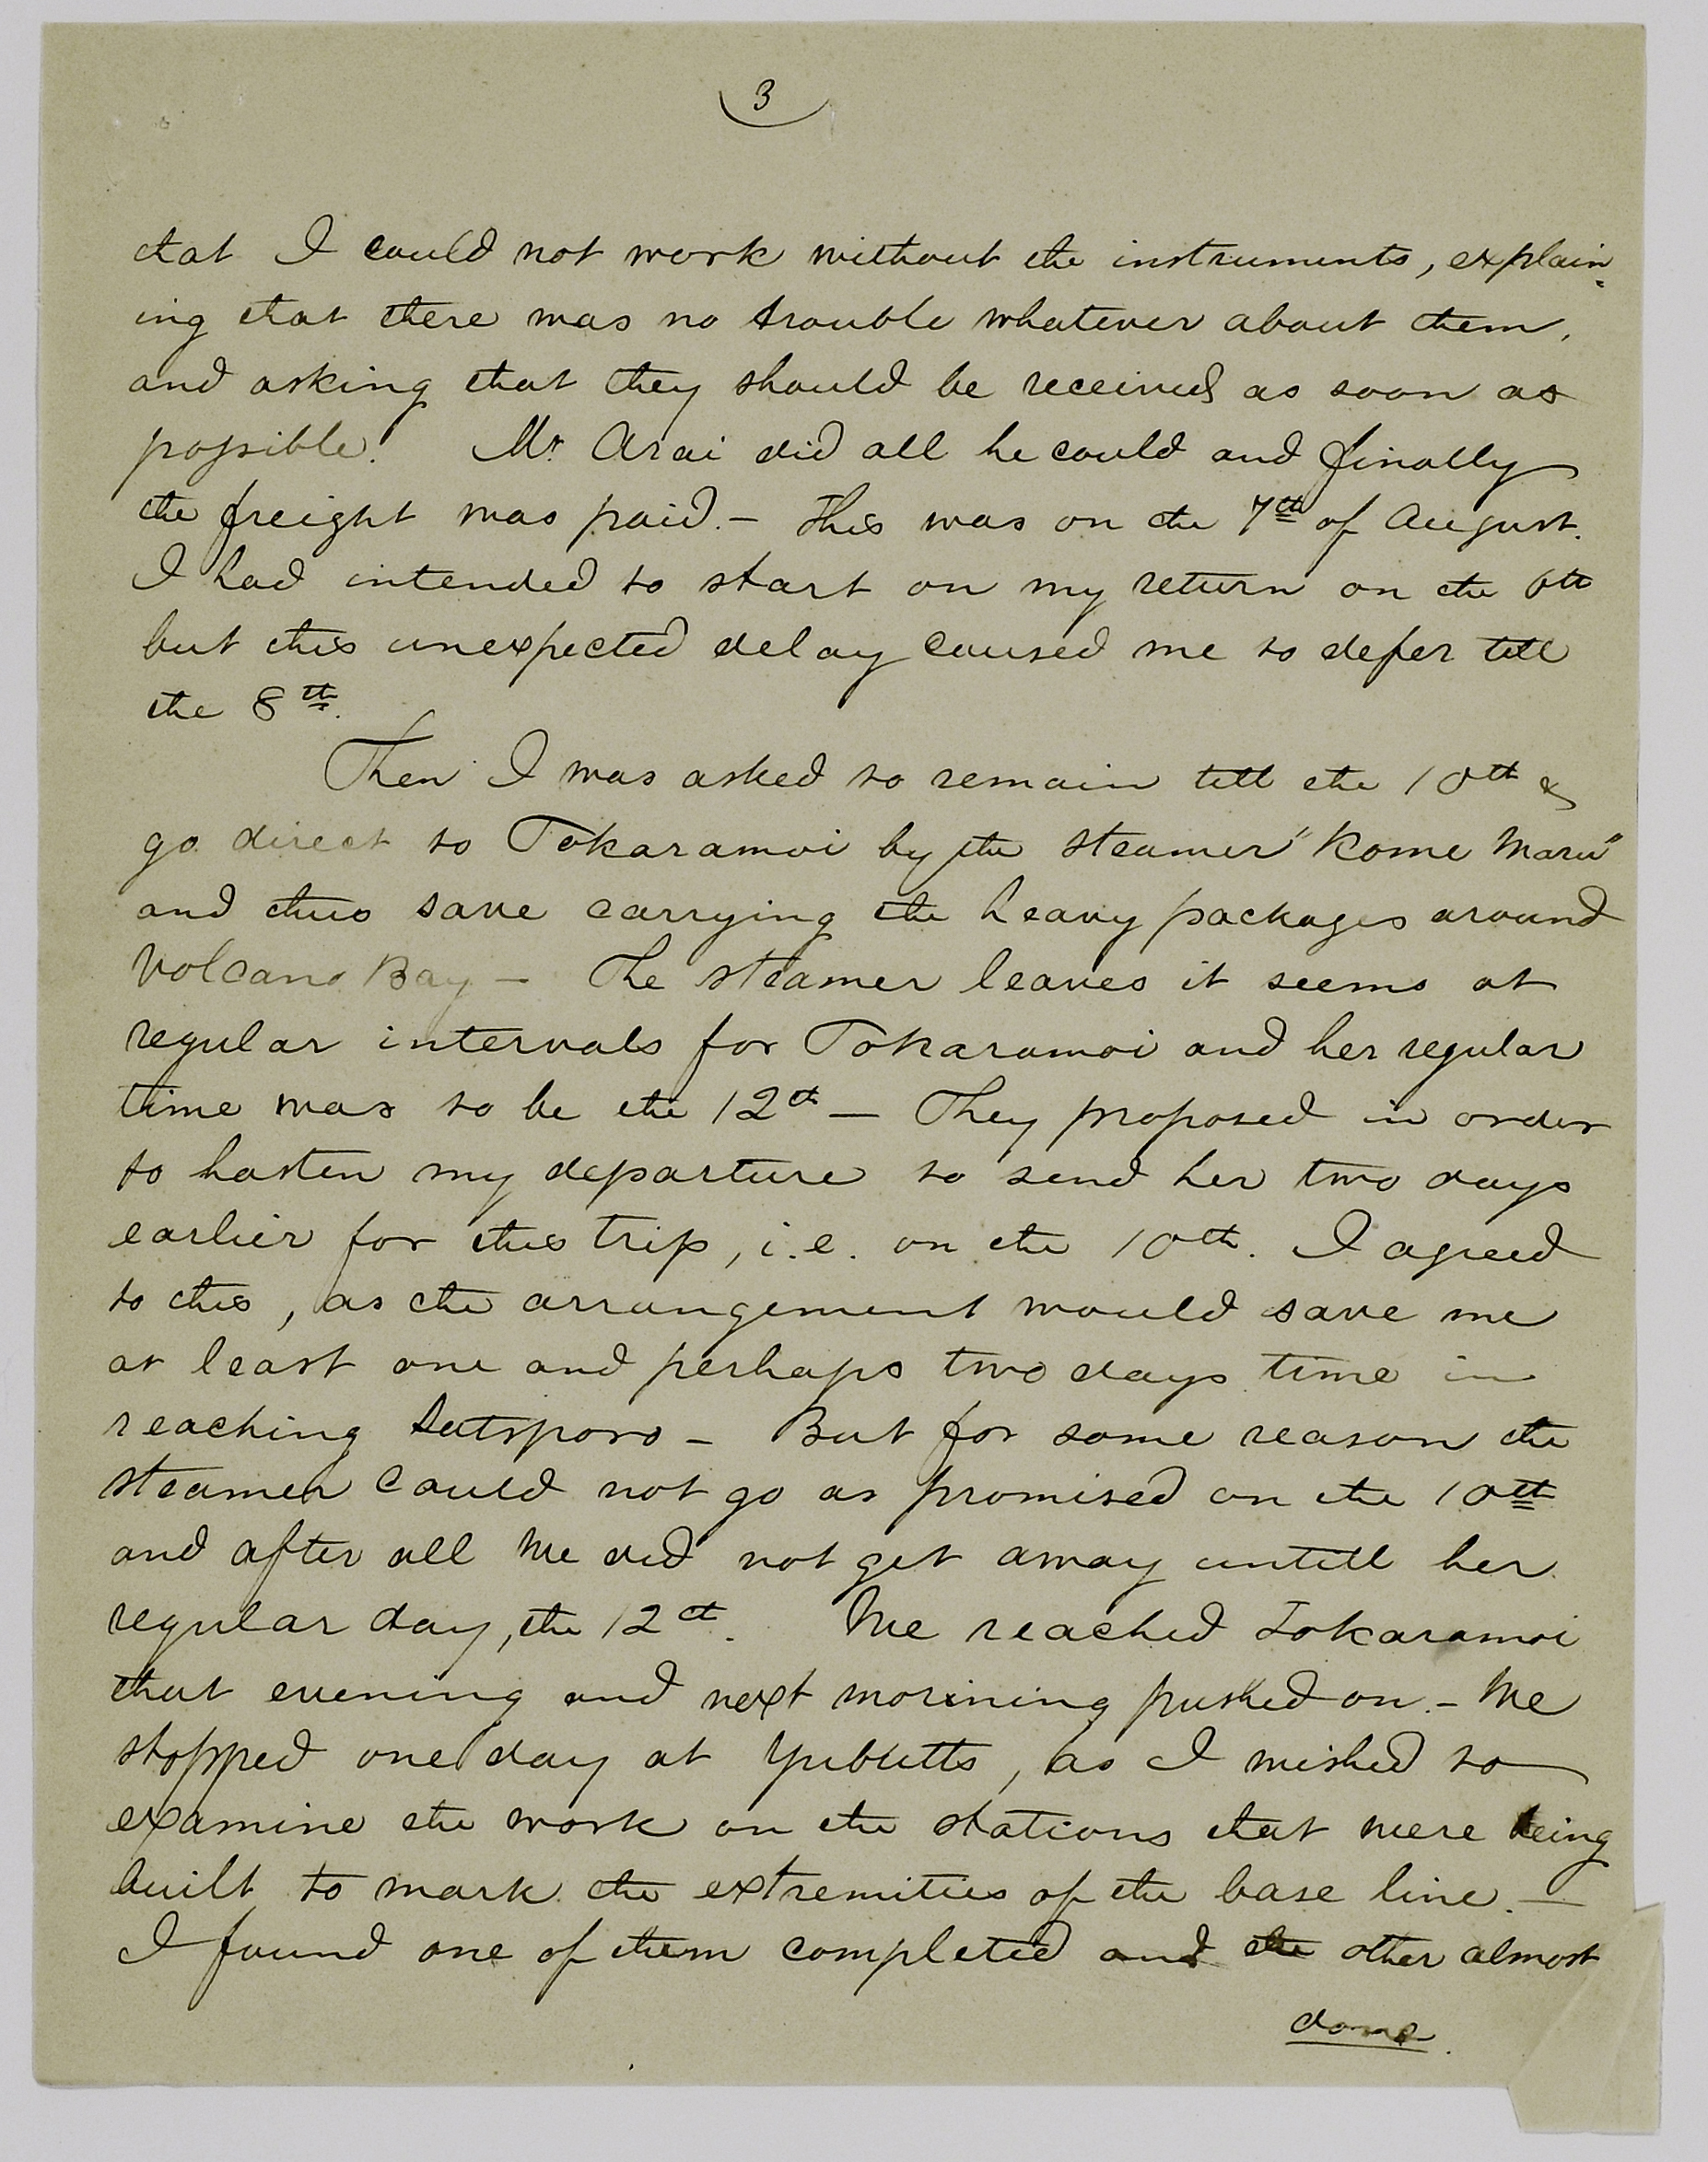 3
that I could not work without the instruments, explain-
ing that there was no trouble whatever about them,
and asking that they should be received as soon as
possible. Mr. Arai did all he could and finally
the freight was paid. – This was on the 7th of August.
I had intended to start on my return on the 6th
but this unexpected delay caused me to defer till
the 8th.
Then I was asked to remain till the 10th &
go direct to Tokaramoi by the steamer "Kome Maru"
and thus save carrying the heavy packages around
Volcano Bay – The steamer leaves it seems at
regular intervals for Tokaramoi and her regular
time was to be the 12th – They proposed in order
to hasten my departure to send her two days
earlier for this trip, i.e. on the 10th. I agreed
to this, as the arrangement would save me
at least one and perhaps two days time in
reaching Satsporo – But for some reason the
steamer could not go as promised on the 10th
and after all we did not get away untill her
regular day, the 12th. We reached Tokaramoi
that evening and next morining pushed on. – We
stopped one day at Yubutts, as I wished to
examine the work on the stations that were being
built to mark the extremities of the base line. –
I found one of them completed and the other almost
done.